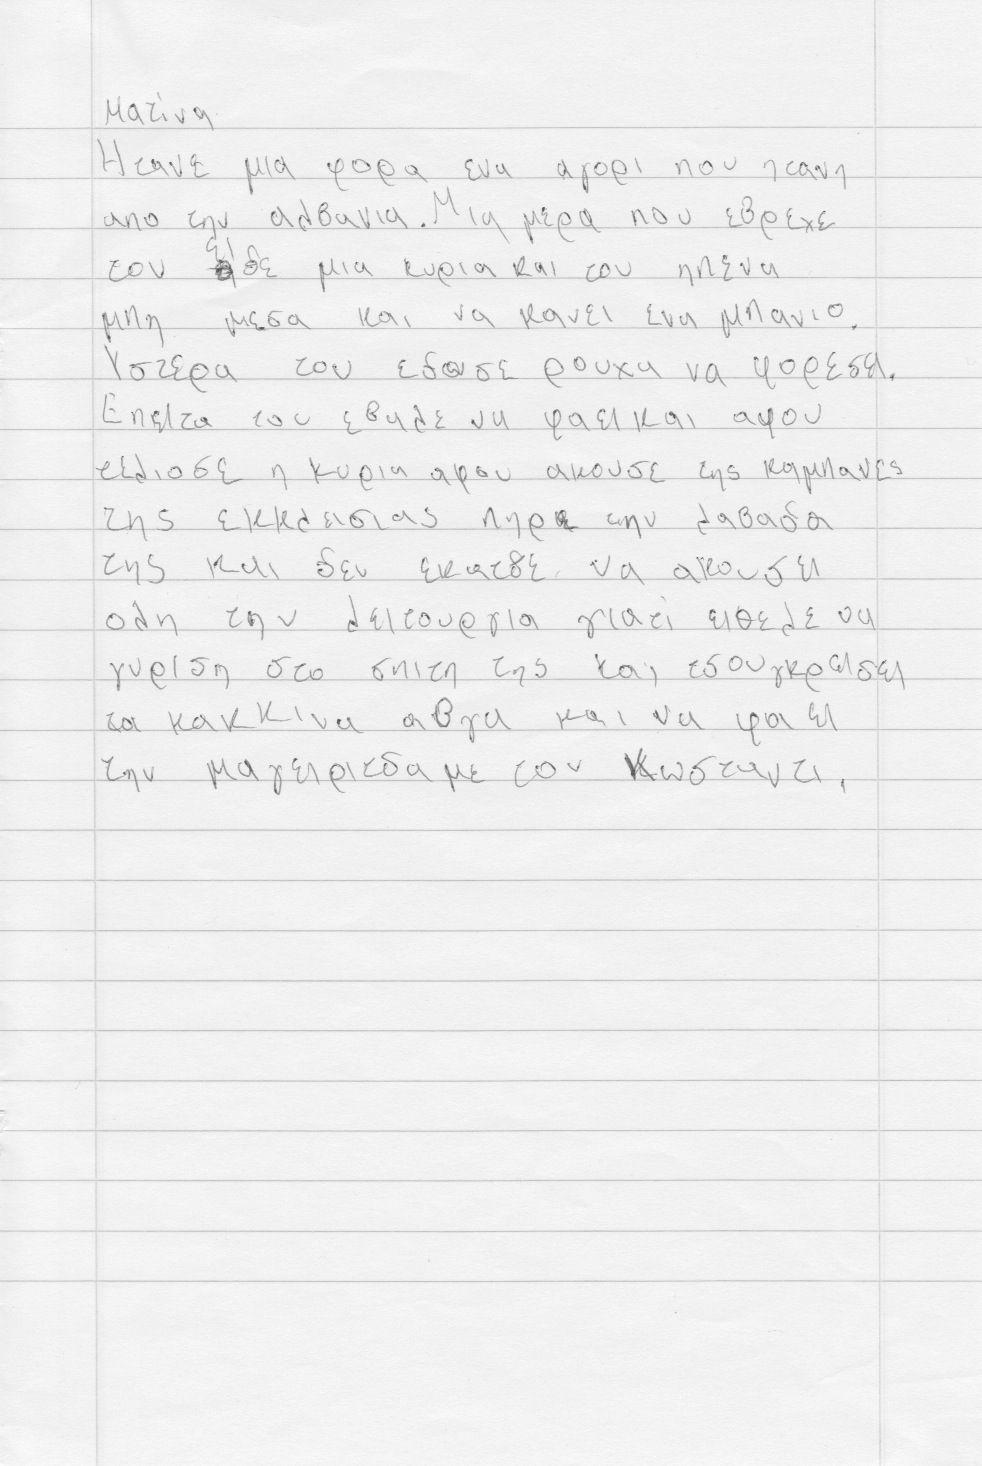 Ματίνα
Ητανε μια φορα ενα αγορι που ητανη
απο την αλβανια. Μια μερα που εβρεχε
τον είδε μια κυρια και του ηπενα
μπη μεσα και να κανει ενα μπανιο.
Υστερα του εδωσε ρουχα να φορεσει.
Επειτα του εβαλε να φαει και αφου
τελιοσε η κυρια αφου ακουσε της καμπανες
της εκκλεισιας πηρε την λαβαδα
της και δεν εκατσε να ακουσει
ολη την λειτουργια γιατί ειθελε να
γυριση στο σπιτη της και τσουγκρεισει
τα κακκινα αβγα και να φαει
την μαγειριτσα με τον Κωσταντι.